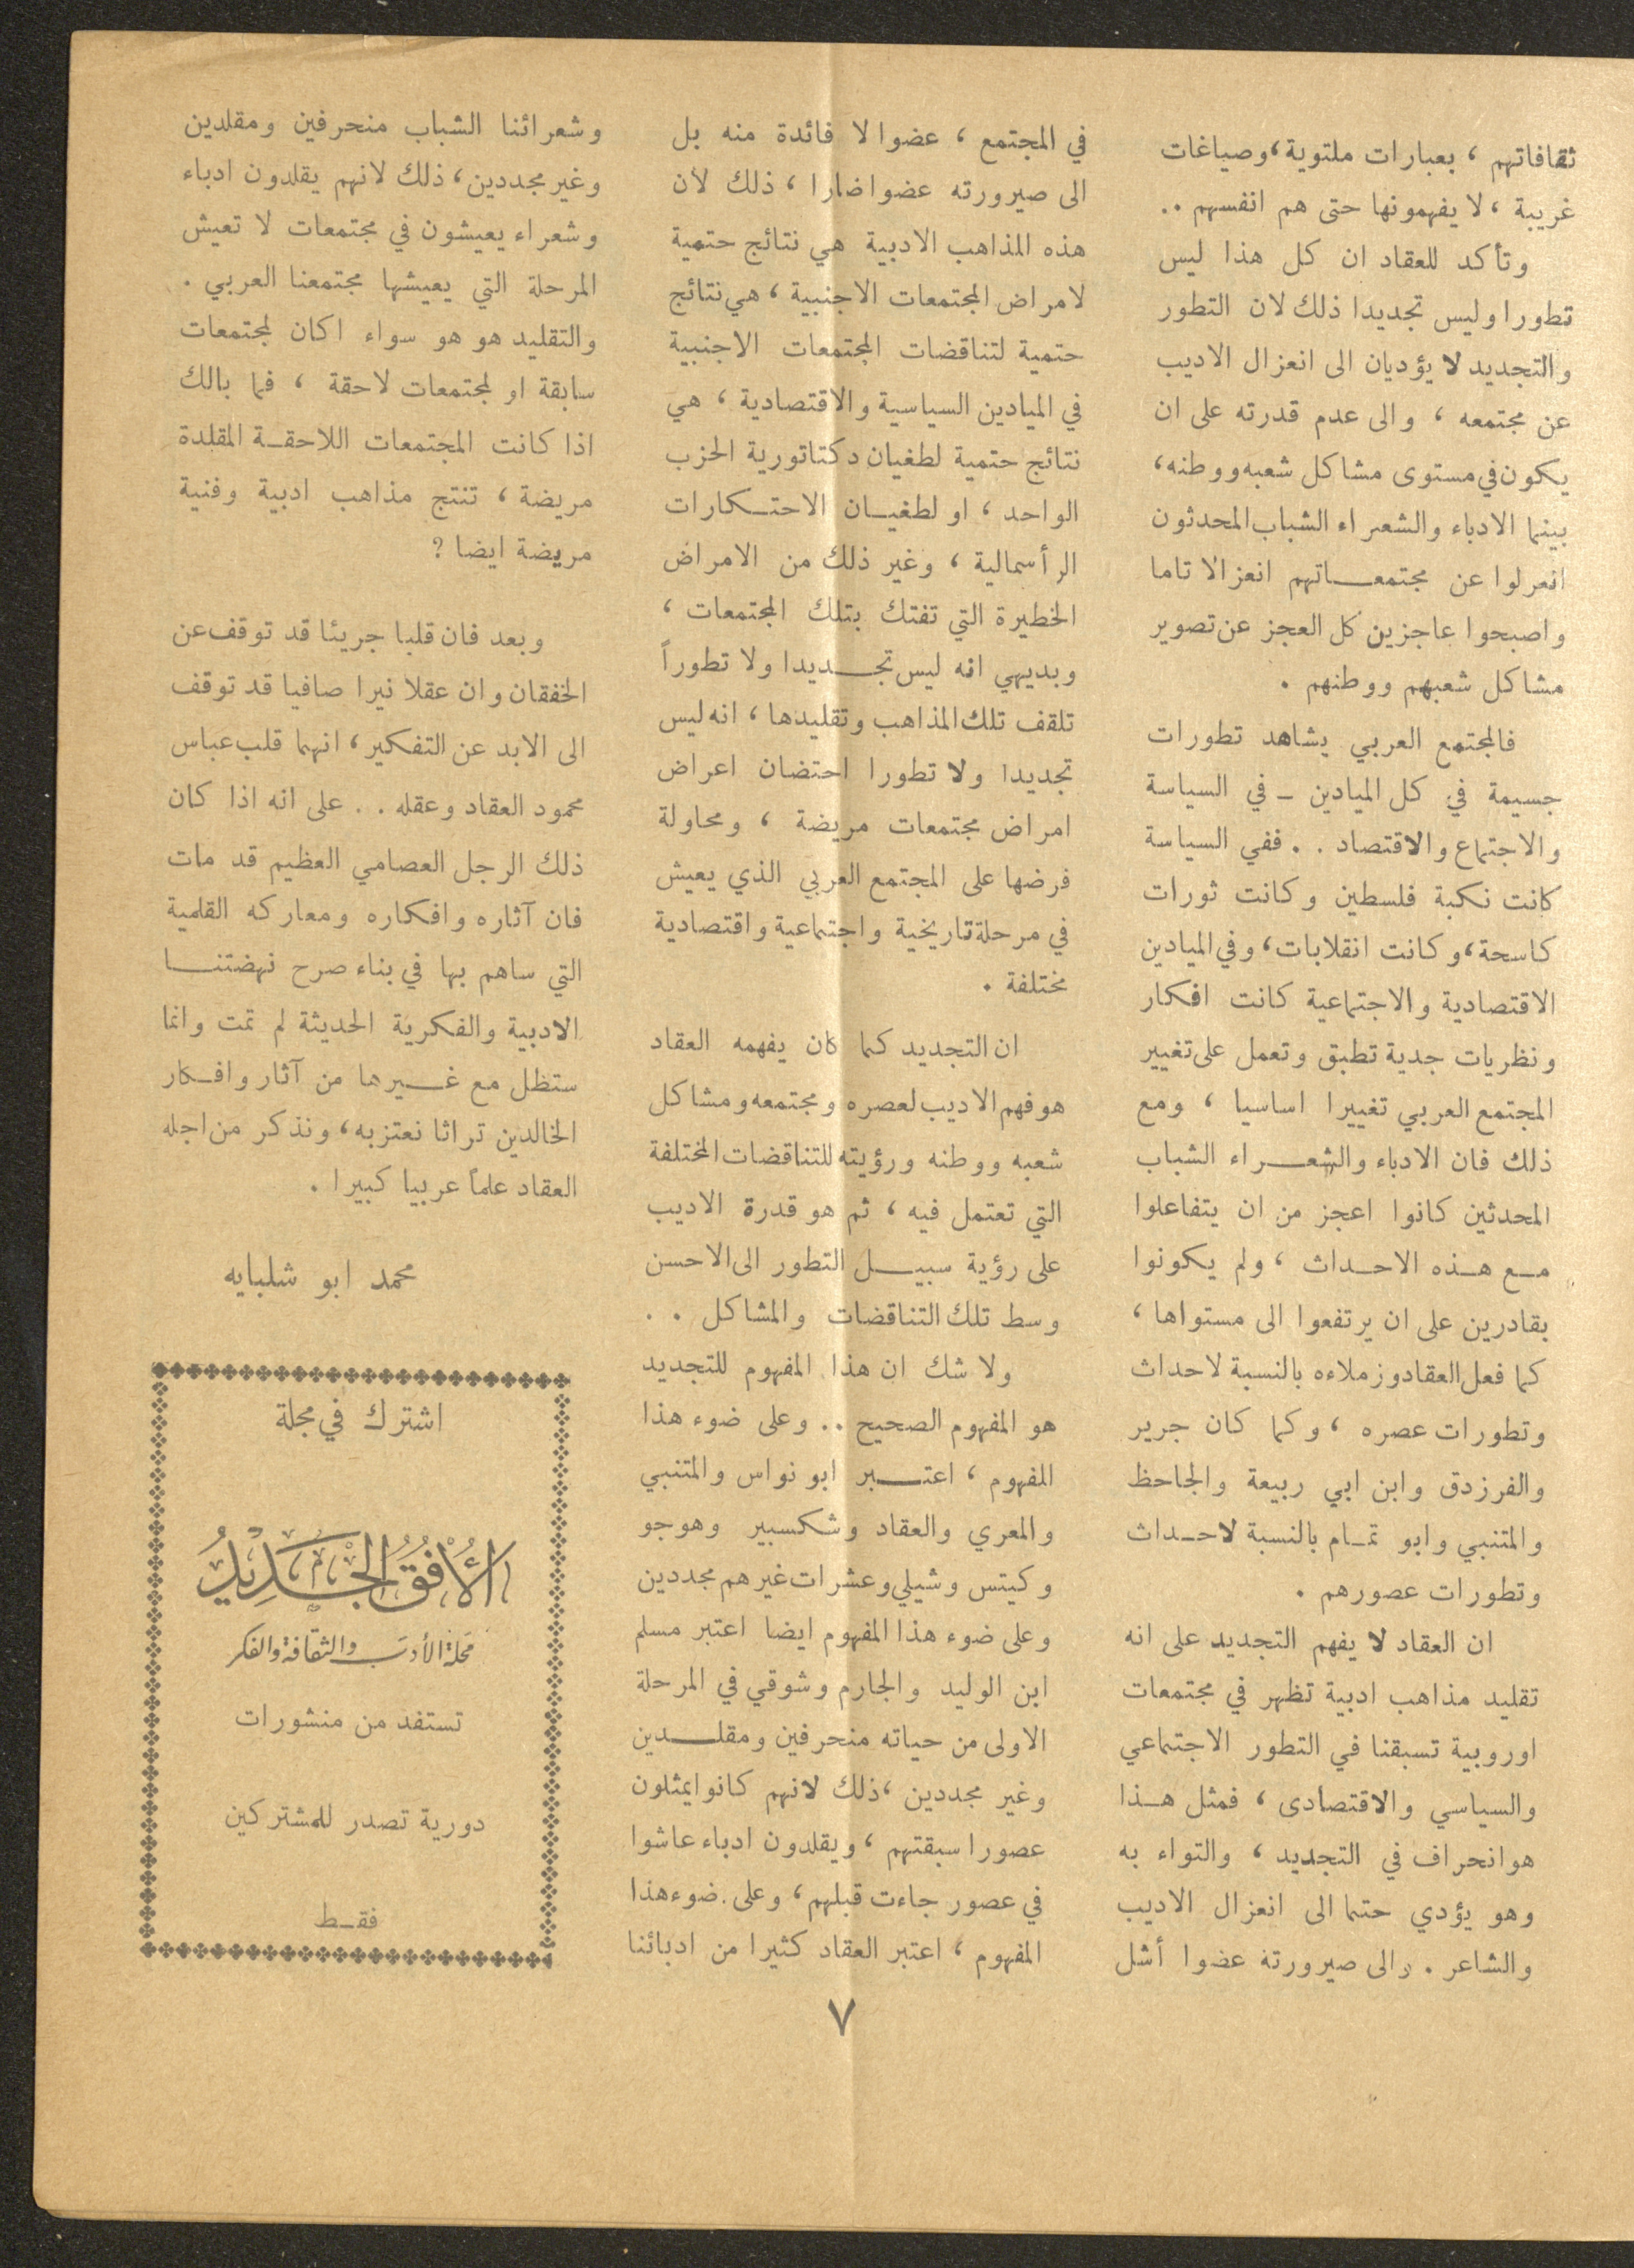 ثقافاتهم ، بعبارات ملتوية، وصياغات
غريبة ، لا يفهمونها حتى هم انفسهم ..
وتأكد للعقاد ان كل هذا ليس
تطورا وليس تجديدا ذلك لان التطور
والتجديد لا يؤديان الى انعزال الاديب
عن مجتمعه ، والى عدم قدرته على ان
يكون في مستوى مشاكل شعبه ووطنه،
بينما الادباء والشعراء الشباب المحدثون
انعرلوا عن مجتمعاتهم انعزالا تاما
واصبحوا عاجزين كل العجز عن تصوير
مشاكل شعبهم ووطنهم .
فالمجتمع العربي يشاهد تطورات
جسيمة في كل الميادين ـ في السياسة
والاجتماع والاقتصاد . . ففي السياسة
كانت نكبة فلسطين وكانت ثورات
كاسحة، وكانت انقلابات، وفي الميادين
الاقتصادية والاجتماعية كانت افكار
ونظريات جدية تطبق وتعمل على تغيير
المجتمع العربي تغييرا اساسيا ، ومع
ذلك فان الادباء والشعراء الشباب
المحدثين كانوا اعجز من ان يتفاعلوا
مع هذه الاحداث ، ولم يكونوا
بقادرين على ان يرتفعوا الى مستواها ،
كما فعل العقاد وزملاءه بالنسبة لاحداث
وتطورات عصره ، وكما كان جرير
والفرزدق وابن ابي ربيعة والجاحظ
والمتنبي وابو تمام بالنسبة لاحداث
وتطورات عصورهم .
ان العقاد لا يفهم التجديد على انه
تقليد مذاهب ادبية تظهر في مجتمعات
اوروبية تسبقنا في التطور الاجتماعي
والسياسي والاقتصادى ، فمثل هذا
هو انحراف في التجديد ، والتواء به
وهو يؤدي حتما الى انعزال الاديب
والشاعر . والى صيرورته عضوا أشل
في المجتمع ، عضوا لا فائدة منه بل
الى صيرورته عضوا ضارا ، ذلك لان
هذه المذاهب الادبية هي نتائج حتمية
لامراض المجتمعات الاجنبية ، هي نتائج
حتمية لتناقضات المجتمعات الاجنبية
في الميادين السياسية والاقتصادية ، هي
نتائج حتمية لطغيان دكتاتورية الحزب
الواحد ، او لطغيان الاحتكارات
الرأسمالية ، وغير ذلك من الامراض
الخطيرة التي تفتك بتلك المجتمعات ،
وبديهي انه ليس تجديدا ولا تطوراً
تلقف تلك المذاهب وتقليدها ، انه ليس
تجديدا ولا تطورا احتضان اعراض
امراض مجتمعات مريضة ، ومحاولة
فرضها على المجتمع العربي الذي يعيش
في مرحلة تاريخية واجتماعية واقتصادية
مختلفة .
ان التجديد كما كان يفهمه العقاد
هو فهم الاديب لعصره ومجتمعه ومشاكل
شعبه ووطنه ورؤيته للتناقضات المختلفة
التي تعتمل فيه ، ثم هو قدرة الاديب
على رؤية سبيل التطور الى الاحسن
وسط تلك التناقضات والمشاكل . .
ولا شك ان هذا المفهوم للتجديد
هو المفهوم الصحيح .. وعلى ضوء هذا
المفهوم ، اعتبر ابو نواس والمتنبي
والمعري والعقاد وشكسبير وهوجو
وكيتس وشيلي وعشرات غيرهم مجددين
وعلى ضوء هذا المفهوم ايضا اعتبر مسلم
ابن الوليد والجارم وشوقي في المرحلة
الاولى من حياته منحرفين ومقلدين
وغير مجددين ، ذلك لانهم كانوا يمثلون
عصورا سبقتهم ، ويقلدون ادباء عاشوا
في عصور جاءت قبلهم ، وعلى ضوء هذا
المفهوم ، اعتبر العقاد كثيرا من ادبائنا
وشعرائنا الشباب منحرفين ومقلدين
وغير مجددين، ذلك لانهم يقلدون ادباء
وشعراء يعيشون في مجتمعات لا تعيش
المرحلة التي يعيشها مجتمعنا العربي .
والتقليد هو هو سواء اكان لمجتمعات
سابقة او لمجتمعات لاحقة ، فما بالك
اذا كانت المجتمعات اللاحقة المقلدة
مريضة ، تنتج مذاهب ادبية وفنية
مريضة ايضا ?
وبعد فان قلبا جريئا قد توقف عن
الخفقان وان عقلا نيرا صافيا قد توقف
الى الابد عن التفكير ، انهما قلب عباس
محمود العقاد وعقله . . على انه اذا كان
ذلك الرجل العصامي العظيم قد مات
فان آثاره وافكاره ومعاركه القلمية
التي ساهم بها في بناء صرح نهضتنا
الادبية والفكرية الحديثة لم تمت وانما
ستظل مع غيرها من آثار وافكار
الخالدين تراثا نعتز به ، ونذكر من اجله
العقاد علماً عربيا كبيرا .
محمد ابو شلبايه
اشترك في مجلة
الأُفُقُ الجَدِيدُ
مجلة الأدب والثقافة والفكر
تستفد من منشورات
دورية تصدر للمشتركين
فقط
٧